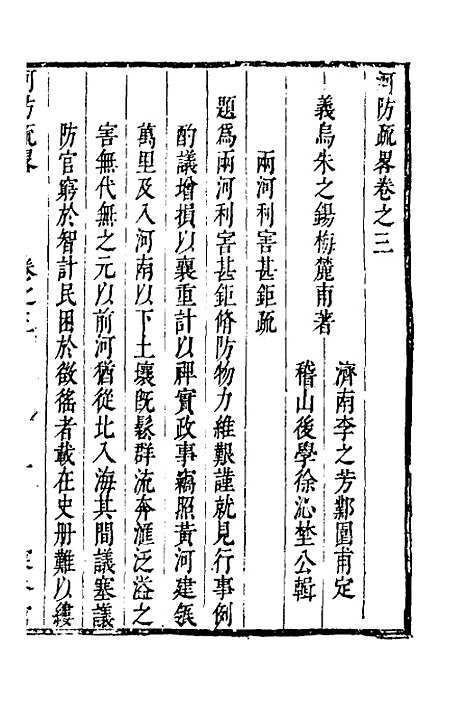 河防疏畧卷之三
濟南李之芳鄴園甫定
義烏朱之錫梅麓甫著
稽山後學徐沁埜公輯
兩河利害甚鉅疏
題爲兩河利害甚鉅脩防物力維艱謹就見行事例
酌議增損以襄重計以裨實政事竊照黃河建瓴
萬里及入河南以下土壤旣鬆群流奔滙泛溢之
害無代無之元以前河猶從北入海其間議塞議
防官窮於智計民困於徵徭者載在史册難以縷
河防疏畧 卷之三